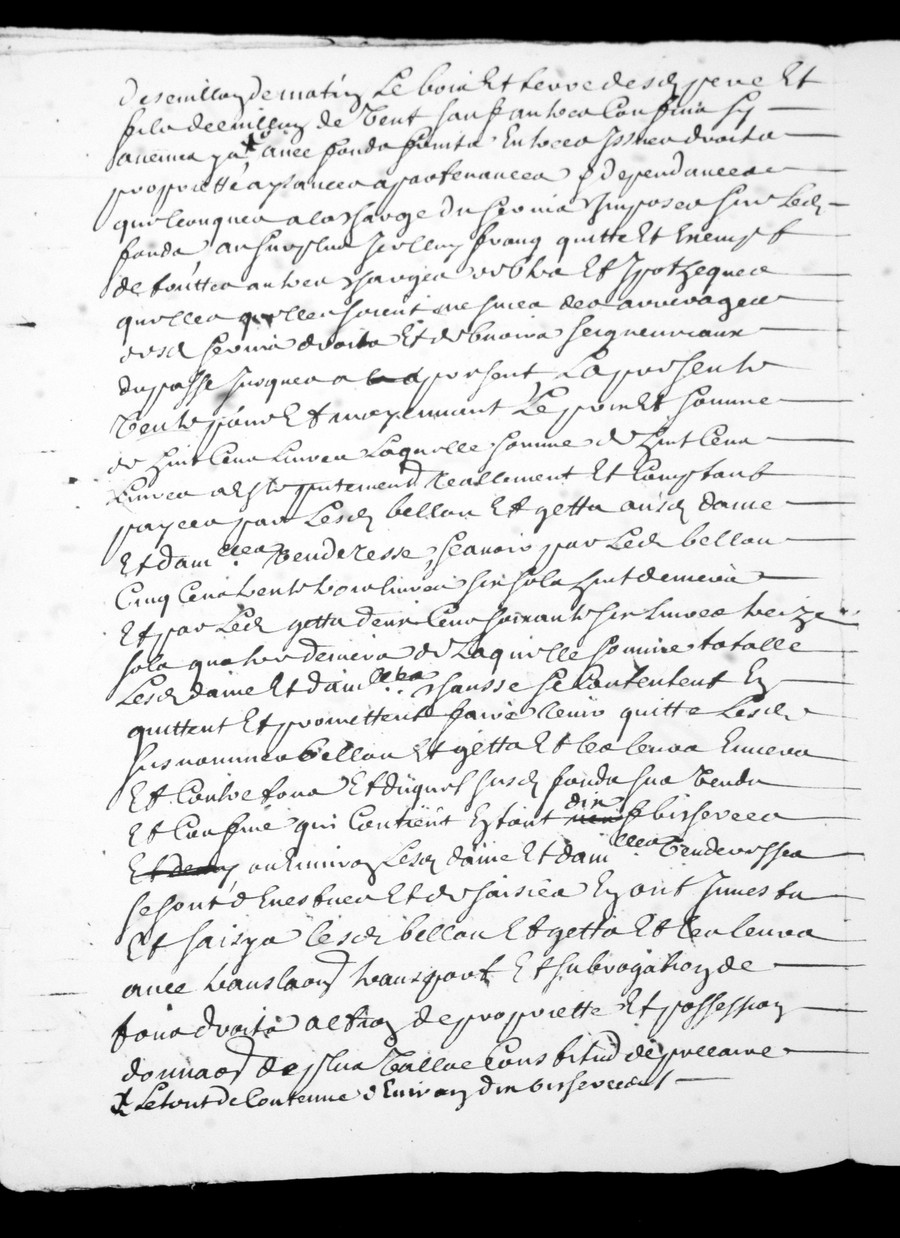 de matin Le bois Et terre desd pere Et
fils de de Vent sauf autres Confins sy
aucuns ya avec fonds fruits Entrees Issues droits
proprietté apances apartenances & dependances
quelconques a la Charge du servis Imposes sur Lesd
fonds au surplus Icelluy franq quitte Et Exempt
de touttes autres Charges debtes Et Ipotheques
quelles quelles soient mesmes des arrerages
desd servis droits Et debvoirs seigneuriaux
du passé Jusques a present La presente
Vente pour Et moyennant Le prix Et somme
de huit Cens Livres Laquelle somme de huit Cens
Livres a Este reallement Et Comptant
payee par Lesd bellon Et getta ausd dame
Et dam lles Venderesse scavoir par Led bellon
Cinq Cens trente trois livres six sols huit deniers
Et par Led getta deux Cens soixante six Livres treize
sols quatre deniers de Laquelle somme totalle
Lesd dame Et dam lles se Contentent En
quittent Et promettent faire tenir quitte Lesd
susnommes bellon Et getta Et les leurs Envers
Et Contre tous Et duquel susd fonds sus Vendu
Et Confiné qui Contient Estant dix bisserees
ou Environ Lesd dame Et dam lles Venderesses
se sont devestues Et desaisies En ont Investu
Et saisy lesd bellon Et getta Et les leurs
avec translaon transport Et subrogation de
tous droits action de proprietté Et possession
donnaon de plus Vallue Constitud de precaire
X Le tout de Contenue d'Environ dix bisserees